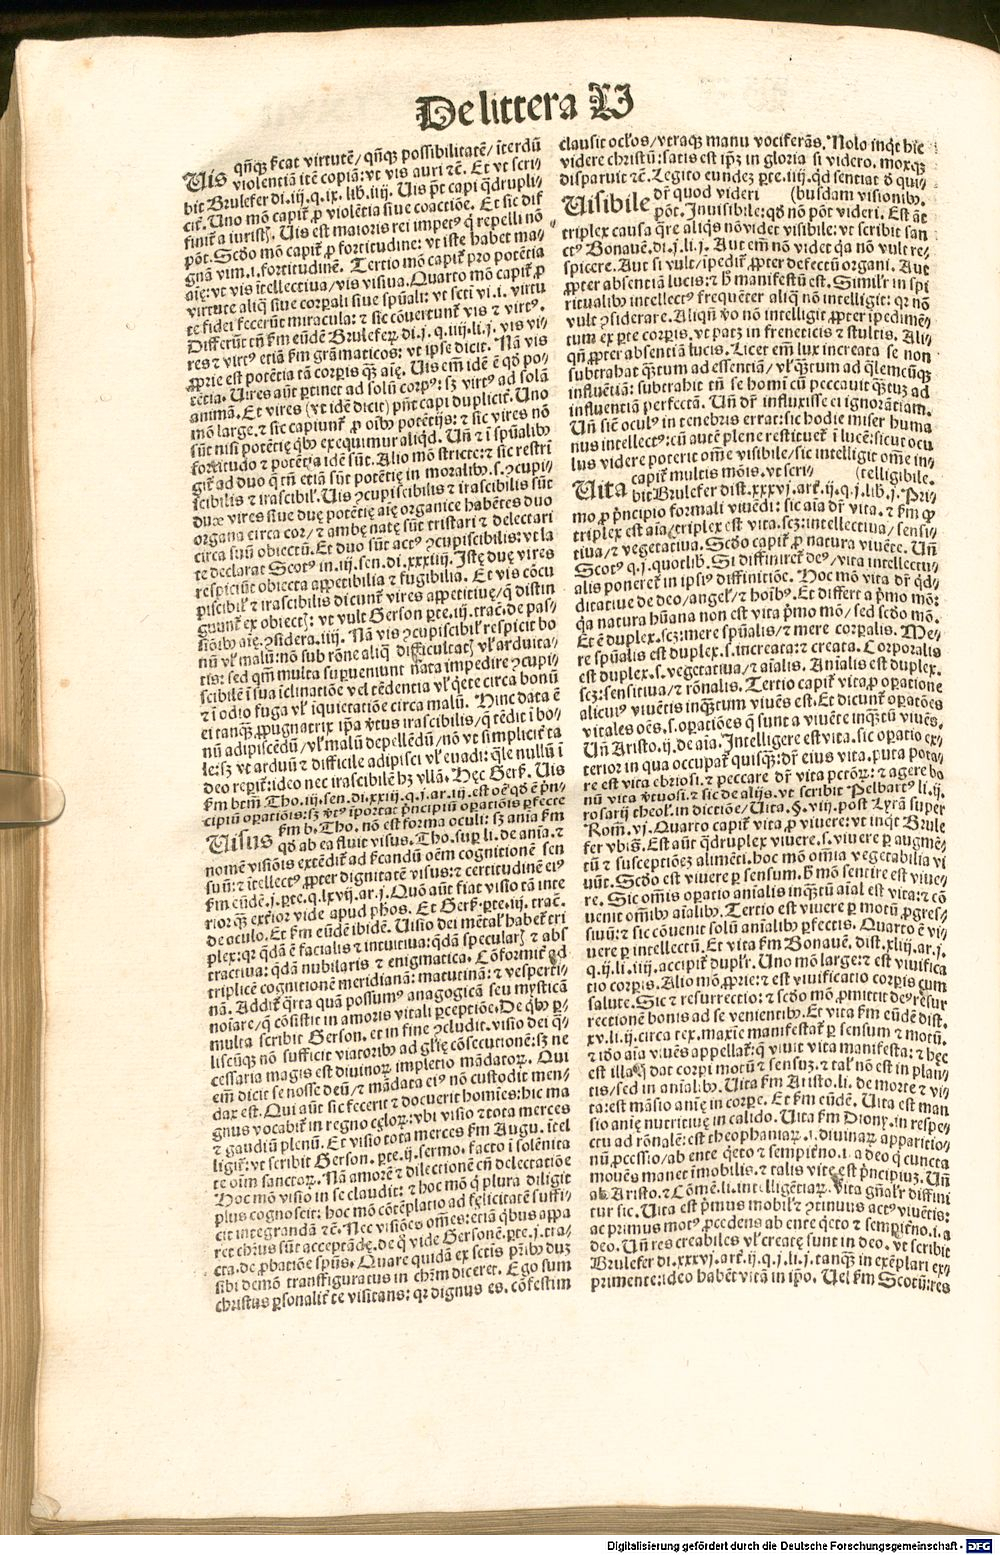 De littera U
Uis qñqȝ ſcat virtutē/ qñqȝ possibilitatē/ īterdū
violentiā itē copiā: vt vis auri ⁊c. Et vt scri⸗
bit Brulefer di.iij.q.ix. lib.iiij. Uis pt̄ capi q̄drupli⸗
cit̄. Uno mō capit̄ ꝓ violētia siue coactiōe. Et sic dif
finit̄ a iurist. Uis est maioris rei impetꝰ q̄ repelli nō
pōt. Scd̄o mō capit̄ ꝓ fortitudine: vt iste habet ma⸗
gnā vim .i. fortitudinē. Tertio mō capit̄ pro potētia
aīe: vt vis ītellectiua/ vis visiua. Quarto mō capit̄ ꝓ
virtute aliq̄ siue corꝑali siue spūali: vt scti vi .i. virtu
te fidei fecerūt miracula: ⁊ sic cōuertunt̄ vis ⁊ virtꝰ.
Differūt tn̄ ẜm eūdē Brulefeꝝ di.j.q.iiij.li.j. vis vi⸗
res ⁊ virtꝰ etiā ẜm grāmaticos: vt ipse dicit. Nā vis
ꝓprie est potētia tā corꝑis qȝ aīe. Uis em̄ idē ē qd̄ po⸗
tētia. Uires aūt ꝑtinet ad solū corpꝰ: sȝ virtꝰ ad solā
animā. Et vires (vt idē dicit) pn̄t capi duplicit̄. Uno
mō large. ⁊ sic capiunt̄ ꝓ oībꝰ potētijs: ⁊ sic vires nō
sūt nisi potētię qbꝰ exequimur aliqd. Un̄ ⁊ ī spūalibꝰ
fortitudo ⁊ potētia idē sūt. Alio mō stricte: ⁊ sic restrī
git̄ ad duo q̄ tn̄ etiā sūt potētię in moralibꝰ. s. ꝯcupi⸗
scibilis ⁊ irascibil̄. Uis ꝯcupiscibilis ⁊ irascibilis sūt
due vires siue duę potētię aīe organice habētes duo
organa circa cor/ ⁊ ambę natę sūt tristari ⁊ delectari
circa suū obiectū. Et duo sūt actꝰ ꝯcupiscibilis: vt la
te declarat Scotꝰ in .iij. sen. di.xxxiiij. Istę duę vires
respiciūt obiecta appetibilia ⁊ fugibilia. Et vis cōcu
piscibil̄ ⁊ irascibilis dicunt̄ vires appetitiuę/ q̄ distin
guunt̄ ex obiect: vt vult Gerson ꝑte.iij. trac̄. de pas⸗
siōibꝰ aīe. ꝯsidera. iiij. Nā vis ꝯcupiscibil̄ respicit bo
nū vl̄ malū: nō sub rōne aliq̄ difficultat̄ vl̄ arduita⸗
tis: sed qm̄ multa suꝑueniunt nata impedire ꝯcupi⸗
scibilē ī sua īclinatiōe vel tēdentia vl̄ q̄ete circa bonū
⁊ ī odio fuga vl̄ īquietatiōe circa malū. Hinc data ē
ei tanqȝ ꝓpugnatrix ip̄a v̄tus irascibilis/ q̄ tēdit ī bo⸗
nū adipiscēdū/ vl̄ malū depellēdū/ nō vt simplicit̄ ta
le: sȝ vt arduū ⁊ difficile adipisci vl̄ euadi: q̄le nullū ī
deo reꝑit̄: ideo nec irascibilē hȝ vllā. Hęc Gerß. Uis
ẜm btm̄ Tho.iij.sen.di.xxiij.q.j.ar.iij.est oē qd̄ ē pn̄⸗
cipiū oꝑatiōis: sȝ vtꝰ īportat pn̄cipiū oꝑatiōis ꝑfecte
Uisus ẜm b. Tho. nō est forma oculi: sȝ anīa ẜm
qd̄ ab ea fluit visus. Tho. suꝑ li. de anīa. ⁊
nomē visiōis extēdit̄ ad ſcandū oēm cognitionē sen
suū: ⁊ ītellectꝰ ꝓpter dignitatē visus: ⁊ certitudinē eiꝰ
ẜm eūdē.j.ꝑte.q.lxvij.ar.j. Quō aūt fiat visio tā inte
rior qȝ exterior vide apud phos. Et Gerß. ꝑte.iij. trac̄.
de oculo. Et ẜm eūdē ibidē. Uisio dei mētal̄ habet̄ tri
plex: qr̄ q̄dā ē facialis ⁊ intuitiua: q̄dā specular ⁊ abs
tractiua: q̄dā nubilaris ⁊ enigmatica. Cōformit̄ ad
triplicē cognitionē meridianā: matutinā: ⁊ vesperti⸗
nā. Addit̄ q̄rta quā possumꝰ anagogicā seu mysticā
noīare/ q̄ cōsistit in amoris vitali ꝑceptiōe. De qbꝰ ꝑ⸗
multa scribit Gerson. et in fine ꝯcludit. visio dei q̄⸗
liscūqȝ nō sufficit viatoribꝰ ad gl̄ię cōsecutionē: sȝ ne
cessaria magis est diuinoꝝ impletio mādatoꝝ. Qui
em̄ dicit se nosse deū/ ⁊ mādata eiꝰ nō custodit men⸗
dax est. Qui aūt sic fecerit ⁊ docuerit homīes: hic ma
gnus vocabit̄ in regno cęloꝝ: vbi visio ⁊ tota merces
⁊ gaudiū plenū. Et visio tota merces ẜm Augu. ītel
ligit̄: vt scribit Gerson. ꝑte.ij. sermo. facto ī solēnita
te oīm sanctoꝝ. Nā amorē ⁊ dilectionē cū delectatiōe
Hoc mō visio in se claudit: ⁊ hoc mō q̄ plura diligit
plus cognoscit: hoc mō cōtēplatio ad fęlicitatē suffi⸗
cit integrandā ⁊c. Nec visiōes oēs: etiā qbus appa
ret chrūs sūt acceptādę. de q̄ vide Gersonē. ꝑte.j. tra⸗
cta. de ꝓbatiōe spūs. Quare quidā ex sctis prībꝰ duȝ
sibi demō transfiguratus in chrm̄ diceret. Ego sum
christus ꝑsonalit̄ te visitans: qr̄ dignus es. cōfestim
clausit oclos/ vtraqȝ manu vociferās. Nolo inqt hic
videre christū: satis est ip̄ȝ in gloria si videro. moxqȝ
disparuit ⁊c. Legito eundeȝ ꝑte.iiij. qd sentiat d̄ qui⸗
dr̄ quod videri (busdam visionibꝰ.
Uisibile pōt. Inuisibile: qd̄ nō pōt videri. Est āt
triplex causa q̄re aliqs nō videt visibile: vt scribit san
ctꝰ Bonauē. di.j.li.j. Aut em̄ nō videt q̄a nō vult re⸗
spicere. Aut si vult/ īpedit̄ ꝓpter defectū organi. Aut
ꝓpter absentiā lucis: ⁊ ħ manifestū est. Similr̄ in spi
ritualibꝰ intellectꝰ frequēter aliq̄ nō intelligit: qr̄ nō
vult ꝯsiderare. Aliqn̄ v̄o nō intelligit ꝓpter īpedimē⸗
tum ex ꝑte corꝑis. vt patȝ in freneticis ⁊ stultis. Ali⸗
qn̄ ꝓpter absentiā lucis. Licet em̄ lux increata se non
subtrahat qȝtum ad essentiā/ vl̄ qȝtum ad q̄lemcūqȝ
influētiā: subtrahit tn̄ se homī cū peccauit qȝtuȝ ad
influentiam perfectā. Un̄ dr̄ influxisse ei ignorātiam.
Un̄ sicē oculꝰ in tenebris errat: sic hodie miser huma
nus intellectꝰ: cū autē plene restituet̄ ī lucē: sicut ocu
lus videre poterit om̄e visibile/ sic intelligit om̄e in⸗
capit̄ multis mōis. vt scri⸗ (telligibile.
Uita bit Brulefer dist.xxxvj. art̄.ij.q.j.lib.j. Pri⸗
mo ꝓ pn̄cipio formali viuēdi: sic aīa dr̄ vita. ⁊ ẜm qȝ
triplex est aīa/ triplex est vita. scȝ: intellectiua/ sensi⸗
tiua/ ⁊ vegetatiua. Scd̄o capit̄ ꝓ natura viuēte. Un̄
Scotꝰ q.j. quotlib. Si diffiniret̄ deꝰ/ vita intellectu⸗
alis poneret̄ in ipsiꝰ diffinitiōe. Hoc mō vita dr̄ q̄d⸗
ditatiue de deo/ angel̄/ ⁊ hoībꝰ. Et differt a pmo mō:
q̄a natura hūana non est vita pmo mō/ sed scd̄o mō.
Et ē duplex. scȝ: mere spūalis/ ⁊ mere corꝑalis. Me⸗
re spūalis est duplex. s. increata: ⁊ creata. Corporalis
est duplex. s. vegetatiua/ ⁊ aīalis. Anīalis est duplex.
scȝ: sensitiua/ ⁊ rōnalis. Tertio capit̄ vita ꝓ oꝑatione
alicuiꝰ viuētis inqȝtum viuēs est. Et dicunt̄ oꝑatōes
vitales oēs. s. oꝑatiōes q̄ sunt a viuēte inqȝtū viuēs.
Un̄ Aristo.ij. de aīa. Intelligere est vita. sic oꝑatio ex⸗
terior in qua occupat̄ quisqȝ: dr̄ eius vita. puta pota⸗
re est vita ebriosi. ⁊ peccare dr̄ vita pctōꝝ: ⁊ agere bo
nū vita v̄tuosi. ⁊ sic de alijs. vt scribit Pelbartꝰ li.ij.
rosarij theol̄. in dictiōe/ Uita. §. viij. post Lyrā super
Rom̄.vj. Quarto capit̄ vita ꝓ viuere: vt inqt Brule
fer vbi s. Est aūt q̄druplex viuere. s. viuere ꝑ augmē⸗
tū ⁊ susceptiōeȝ alimēti. hoc mō om̄ia vegetabilia vi
uūt. Scd̄o est viuere ꝑ sensum. ħ mō sentire est viue⸗
re. Sic om̄is oꝑatio anīalis inqȝtū aīal est vita: ⁊ cō
uenit om̄ibꝰ aīalibꝰ. Tertio est viuere ꝑ motū ꝓgres⸗
siuū: ⁊ sic cōuenit solū anīalibꝰ ꝑfectis. Quarto ē vi⸗
uere ꝑ intellectū. Et vita ẜm Bonauē. dist.xliij.ar.j.
q.ij.li.iiij. accipit̄ duplr̄. Uno mō large: ⁊ est viuifica
tio corꝑis. Alio mō ꝓprie: ⁊ est viuificatio corꝑis cum
salute. Sic ⁊ resurrectio: ⁊ scd̄o mō ꝓmittit deꝰ resur
rectionē bonis ad se venientibꝰ. Et vita ẜm eūdē dist.
xv.li.ij. circa tex. maxīe manifestat̄ ꝑ sensum ⁊ motū.
⁊ iō aīa viuēs appellat̄: q̄ viuit vita manifesta: ⁊ hęc
est illa q̄ dat corpi motū ⁊ sensuȝ. ⁊ tal̄ nō est in plan⸗
tis/ sed in anīalibꝰ. Uita ẜm Aristo. li. de morte ⁊ vi⸗
ta: est māsio anīę in corꝑe. Et ẜm eūdē. Uita est man
sio anīę nutritiuę in calido. Uita ẜm Diony. in respe⸗
ctu ad rōnalē: est theophaniaꝝ .i. diuinaꝝ apparitio⸗
nū ꝓcessio/ ab ente q̄eto ⁊ sempit̄no. i. a deo q̄ cuncta
mouēs manet īmobilis. ⁊ talis vitę est pn̄cipiuȝ. Un̄
ab Aristo. ⁊ Cōmē. li. intelligētiaꝝ. Vita gn̄alr̄ diffini
tur sic. Uita est pmus mobil̄ ⁊ ꝯtinuus actꝰ viuētis:
ac primus motꝰ ꝓcedens ab ente q̄eto ⁊ sempit̄no. i. a
deo. Un̄ res creabiles vl̄ creatę sunt in deo. vt scribit
Brulefer di.xxxvj. art̄.ij.q.j.li.j. tanqȝ in exēplari ex⸗
primente: ideo habēt vitā in ip̄o. Uel ẜm Scotū: res
Digitalisierung gefördert durch die Deutsche Forschungsgemeinschaft - DFG